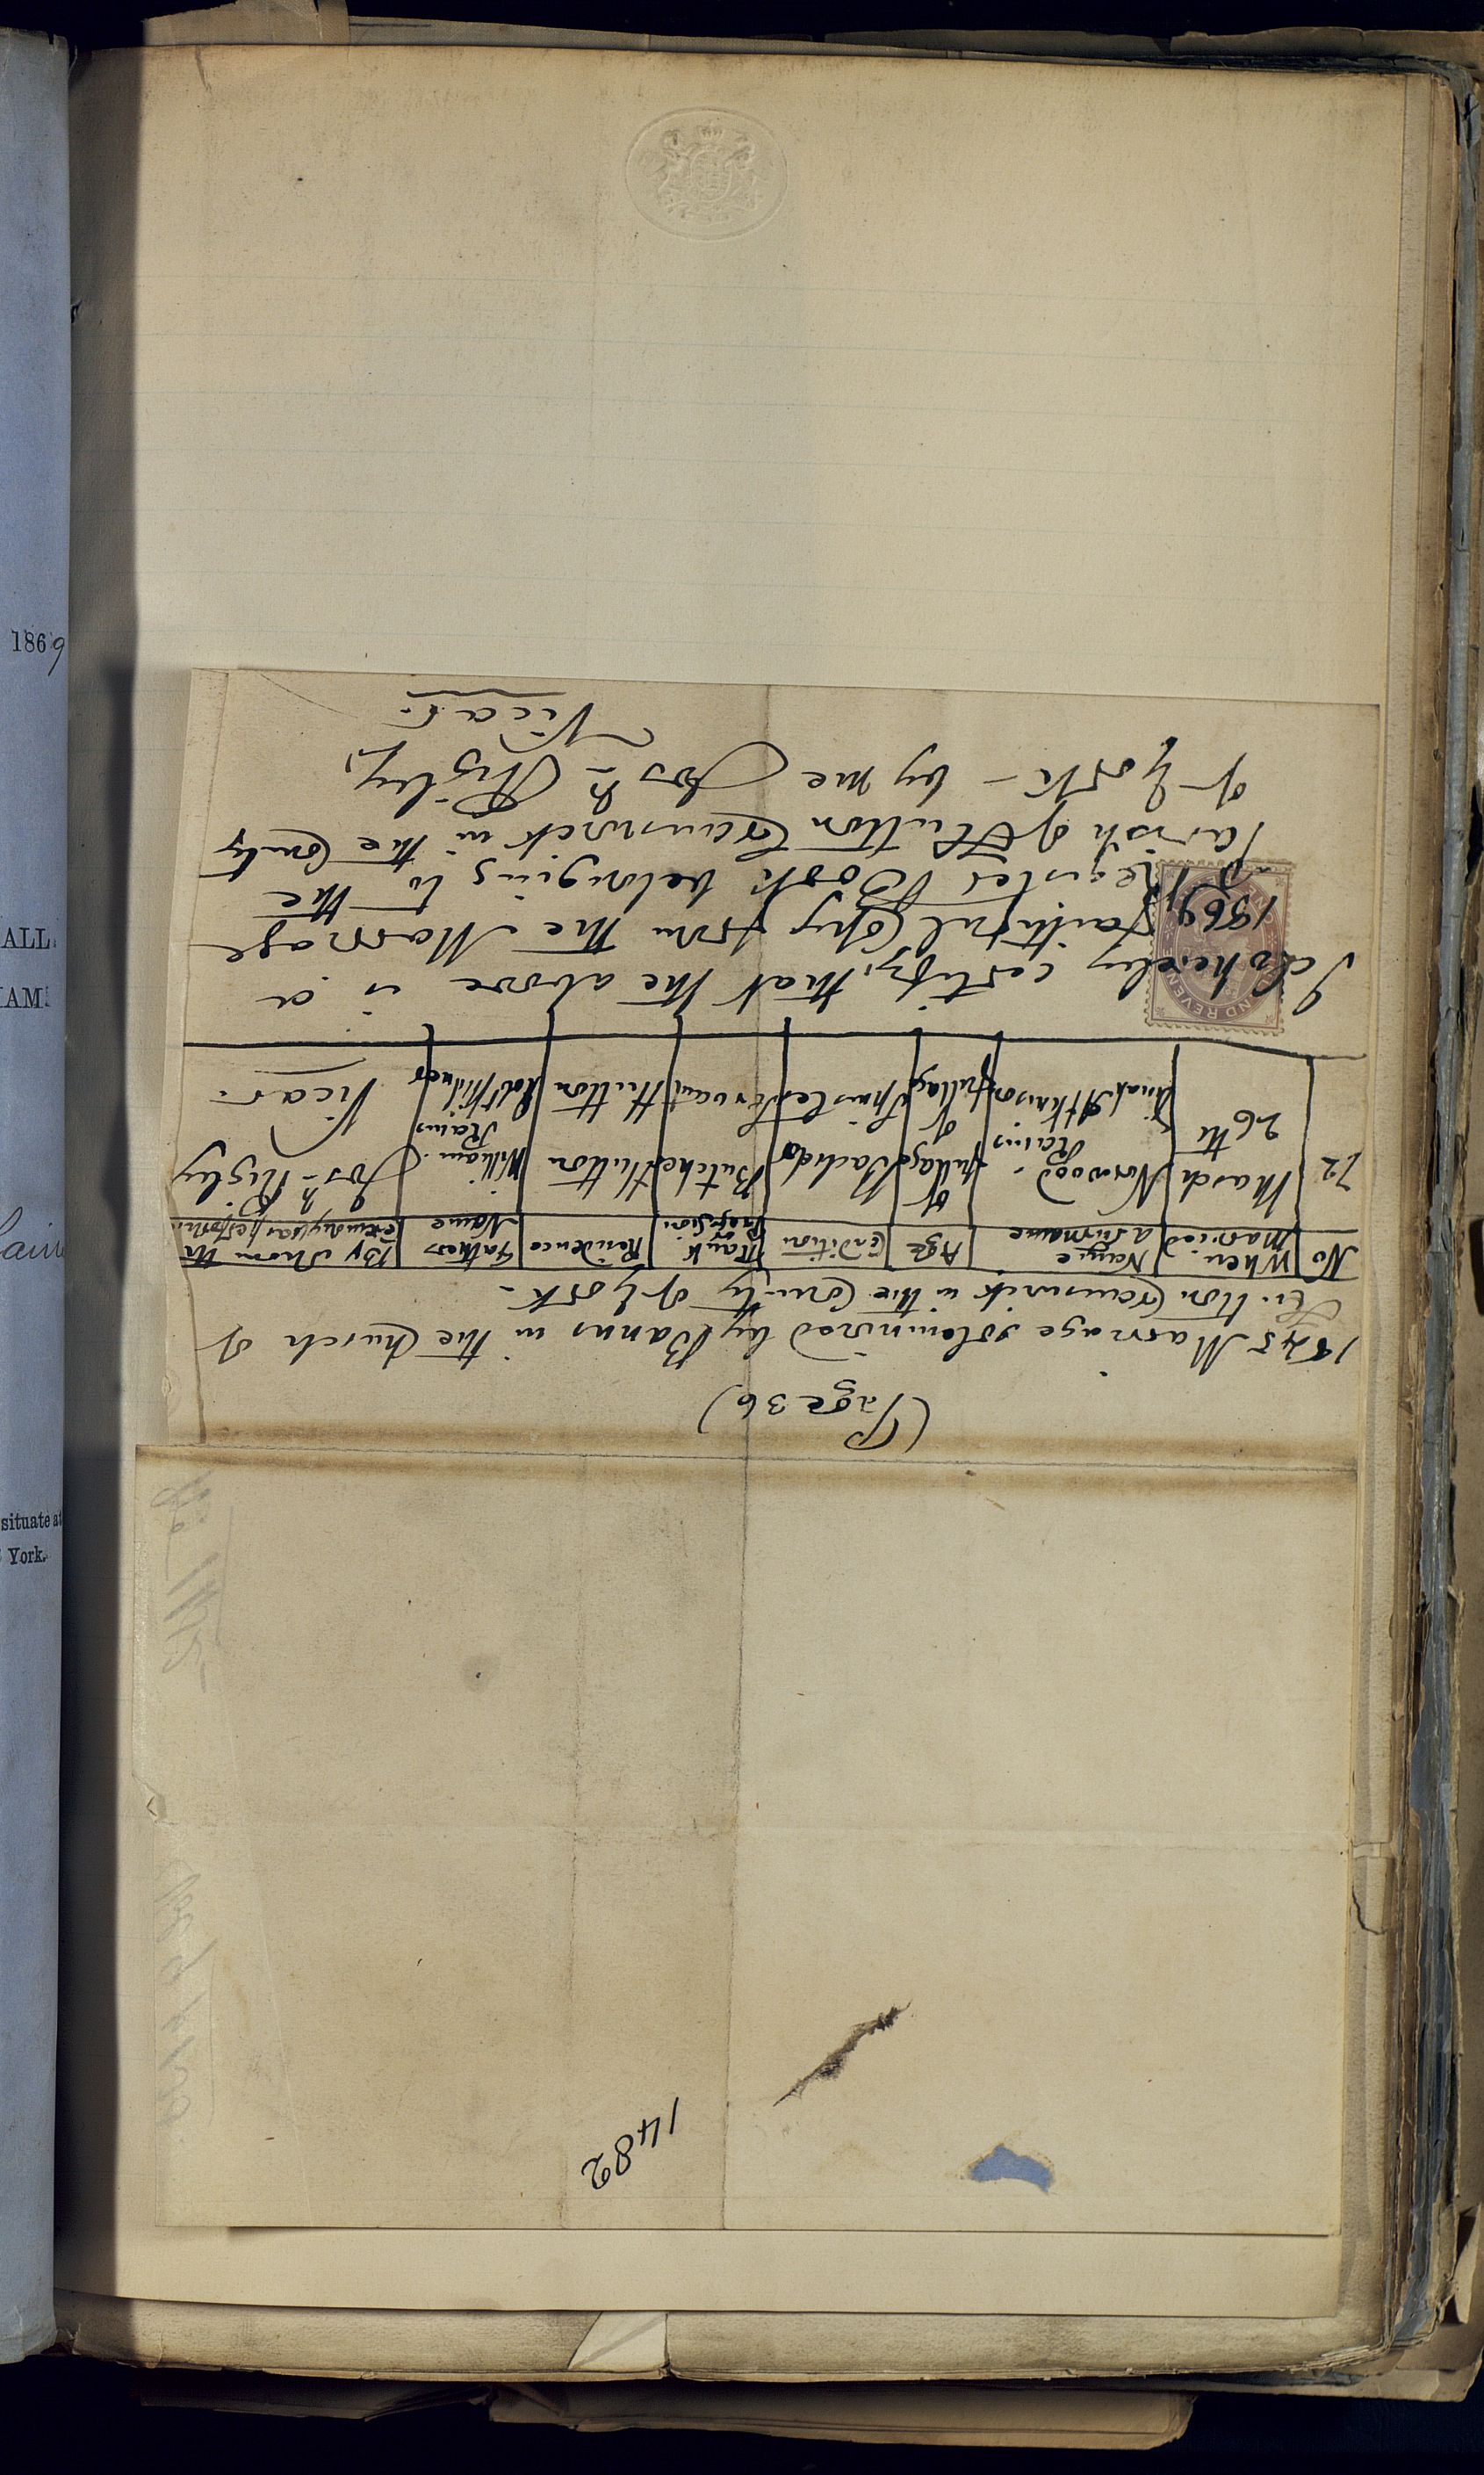 1482
(Page 36)
1845 Marriage solemnized by Banns in the Church of
Hutton Cranswick in the County of York -
No | When Married | Name & Surname | Age | Condition | Rank or Profession | Residence | Fathers Name | By whom the Ceremony was perform
72 | March 26th | Norwood Rains | of full age | Bachelor | Butcher | Hutton | William Rains | Josh Rigby
Dinah Atkinson | of full age | Spinster | Servant | Hutton | Robt | Vicar.
I do hereby certify, that the above is a
1869, faithful Copy from the Marriage
Register Book belonging to the
Parish of Hutton Cranswick in the County
of York - by me Josh Rigby,
Vicar.
1869
ALL
AM
situate at
York.